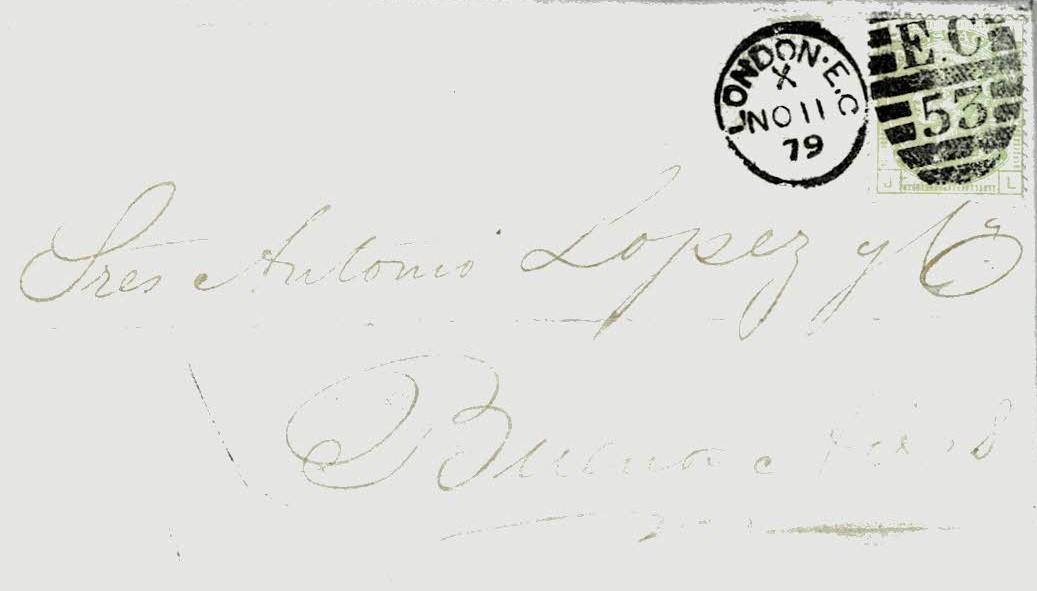 LONDON·E.C
X
NO 11
79
E.C
53
J L
Sres Antonio Lopez y Ca
Buenos Aires